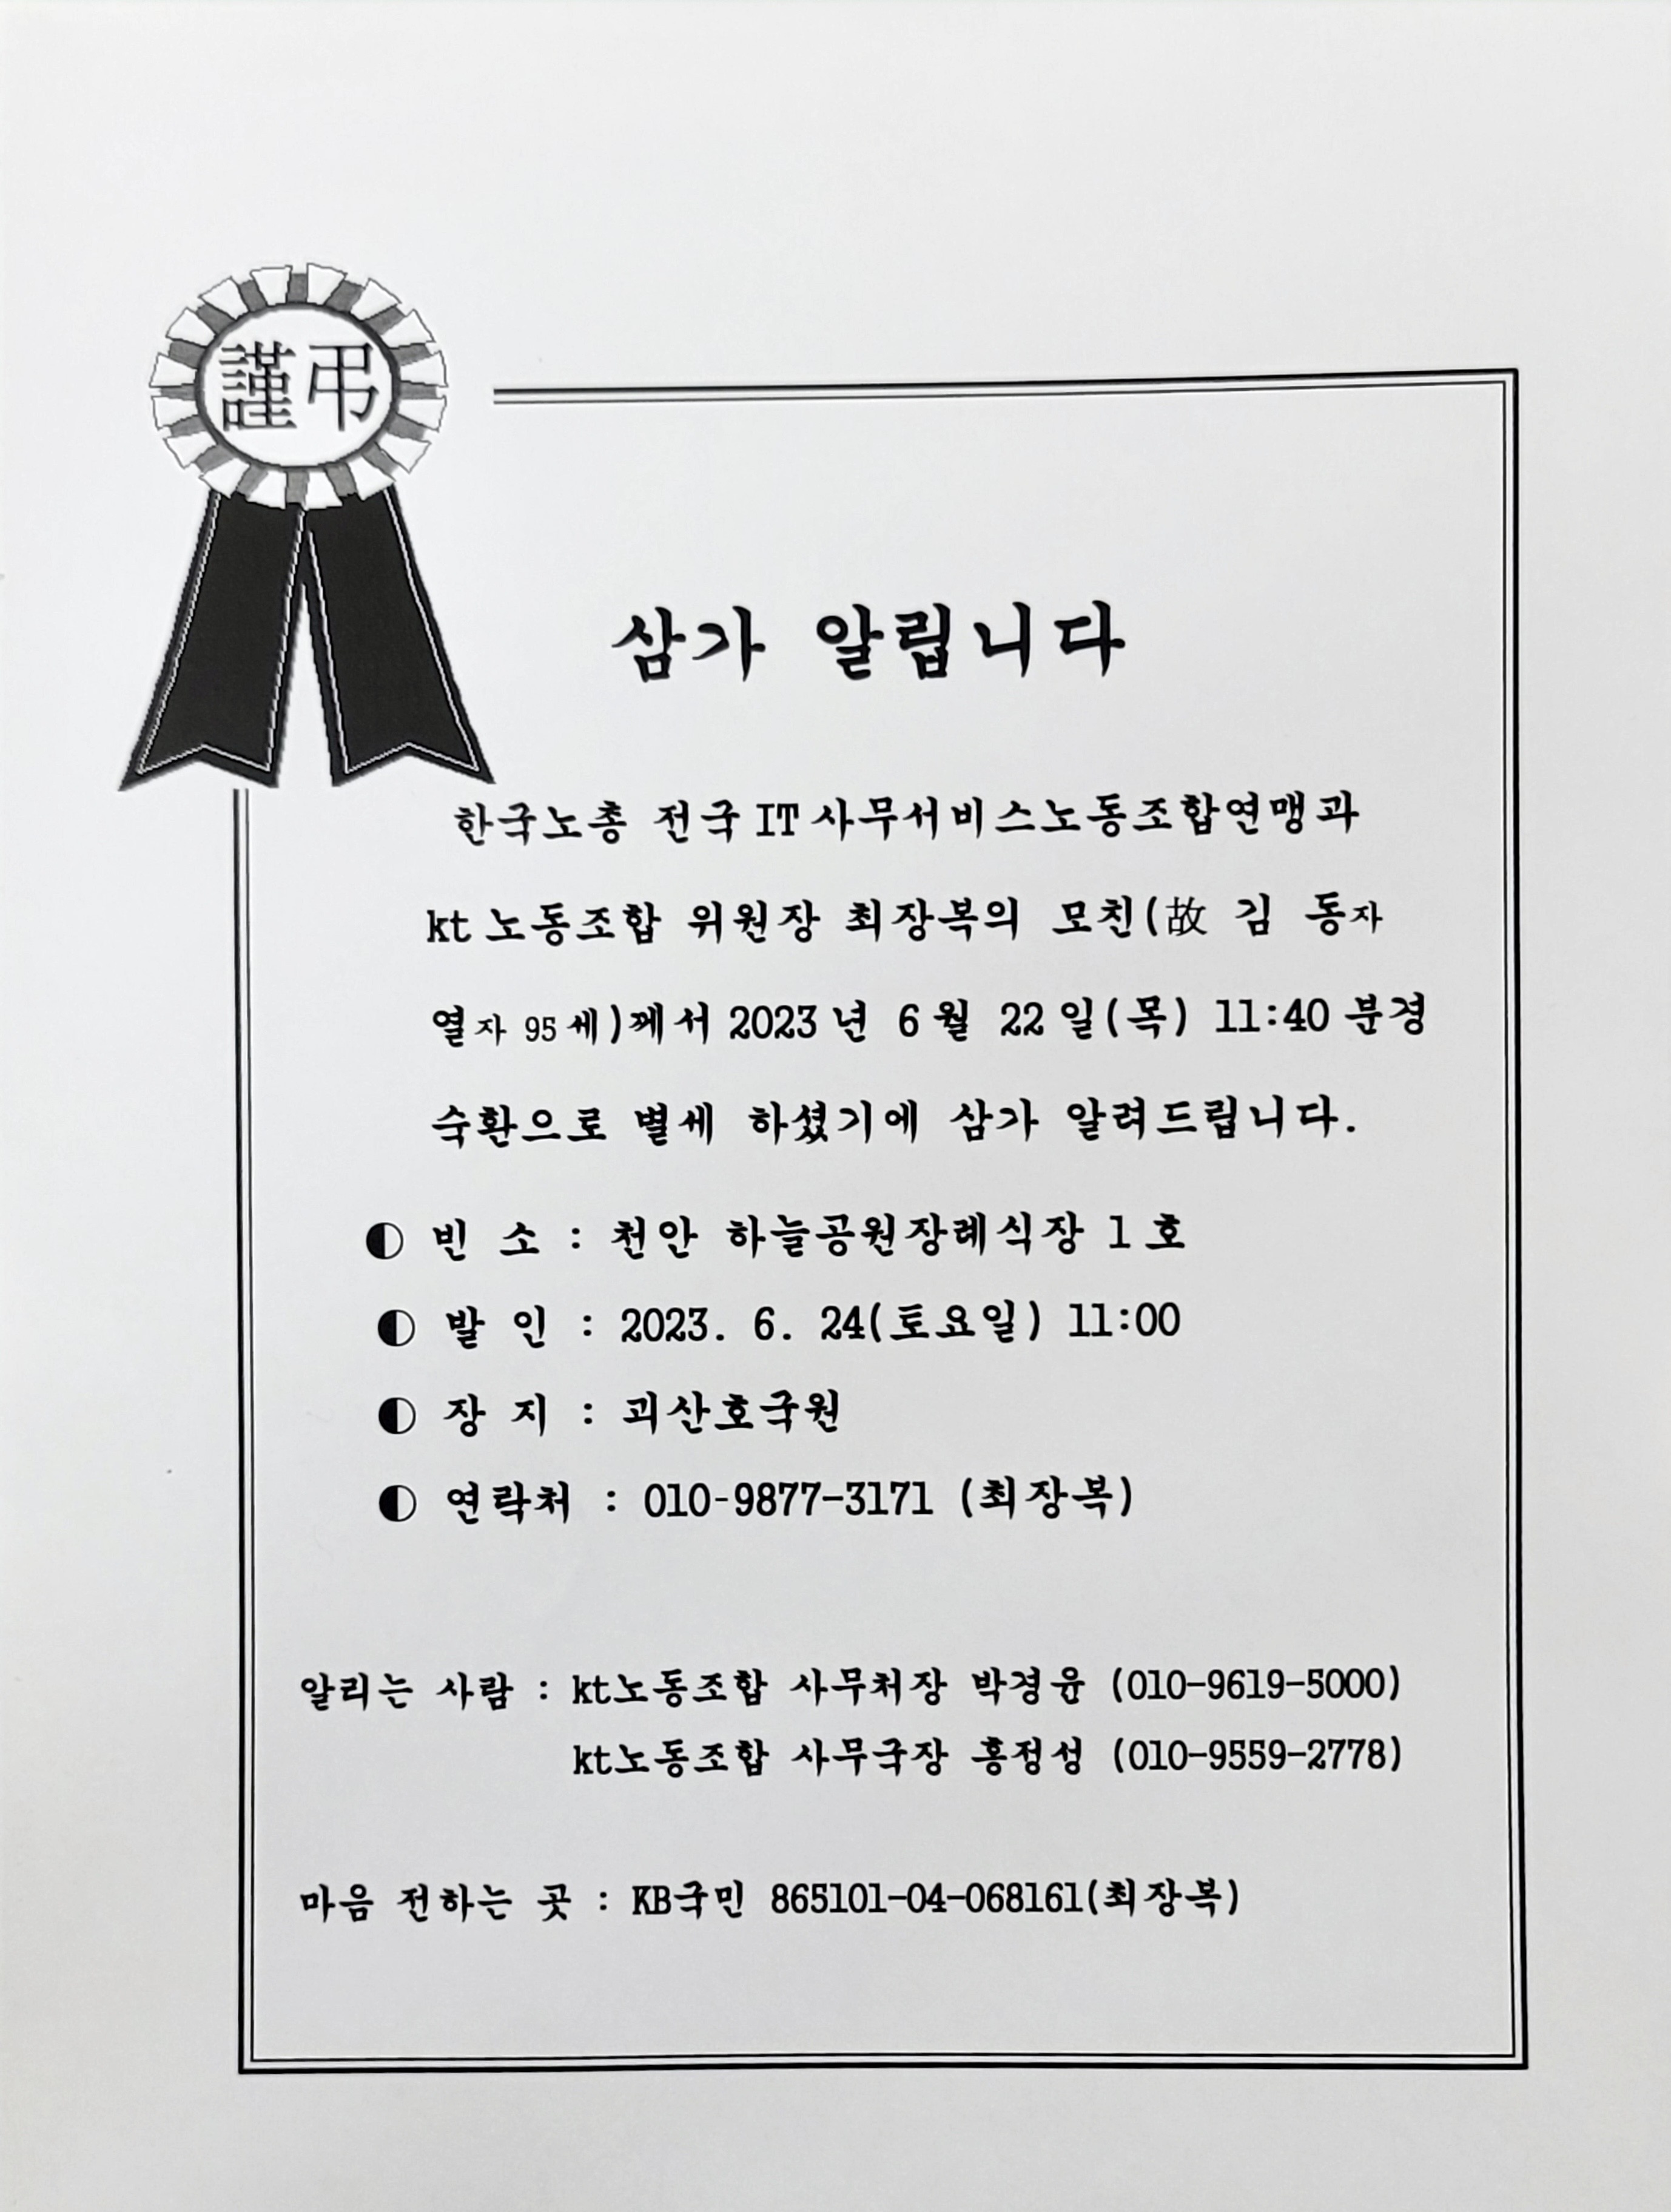 謹弔
삼가 알립니다
한국노총 전국IT사무서비스노동조합연맹과
kt노동조합 위원장 최장복의 모친(故 김 동자
열자 95세)께서 2023년 6월 22일(목) 11:40분경
숙환으로 별세 하셨기에 삼가 알려드립니다.
◐ 빈 소 : 천안 하늘공원장례식장 1호
◐ 발 인 : 2023. 6. 24(토요일) 11:00
◐ 장 지 : 괴산호국원
◐ 연락처 : 010-9877-3171 (최장복)
알리는 사람 : kt노동조합 사무처장 박경윤 (010-9619-5000)
kt노동조합 사무국장 홍정성 (010-9559-2778)
마음 전하는 곳 : KB국민 865101-04-068161(최장복)